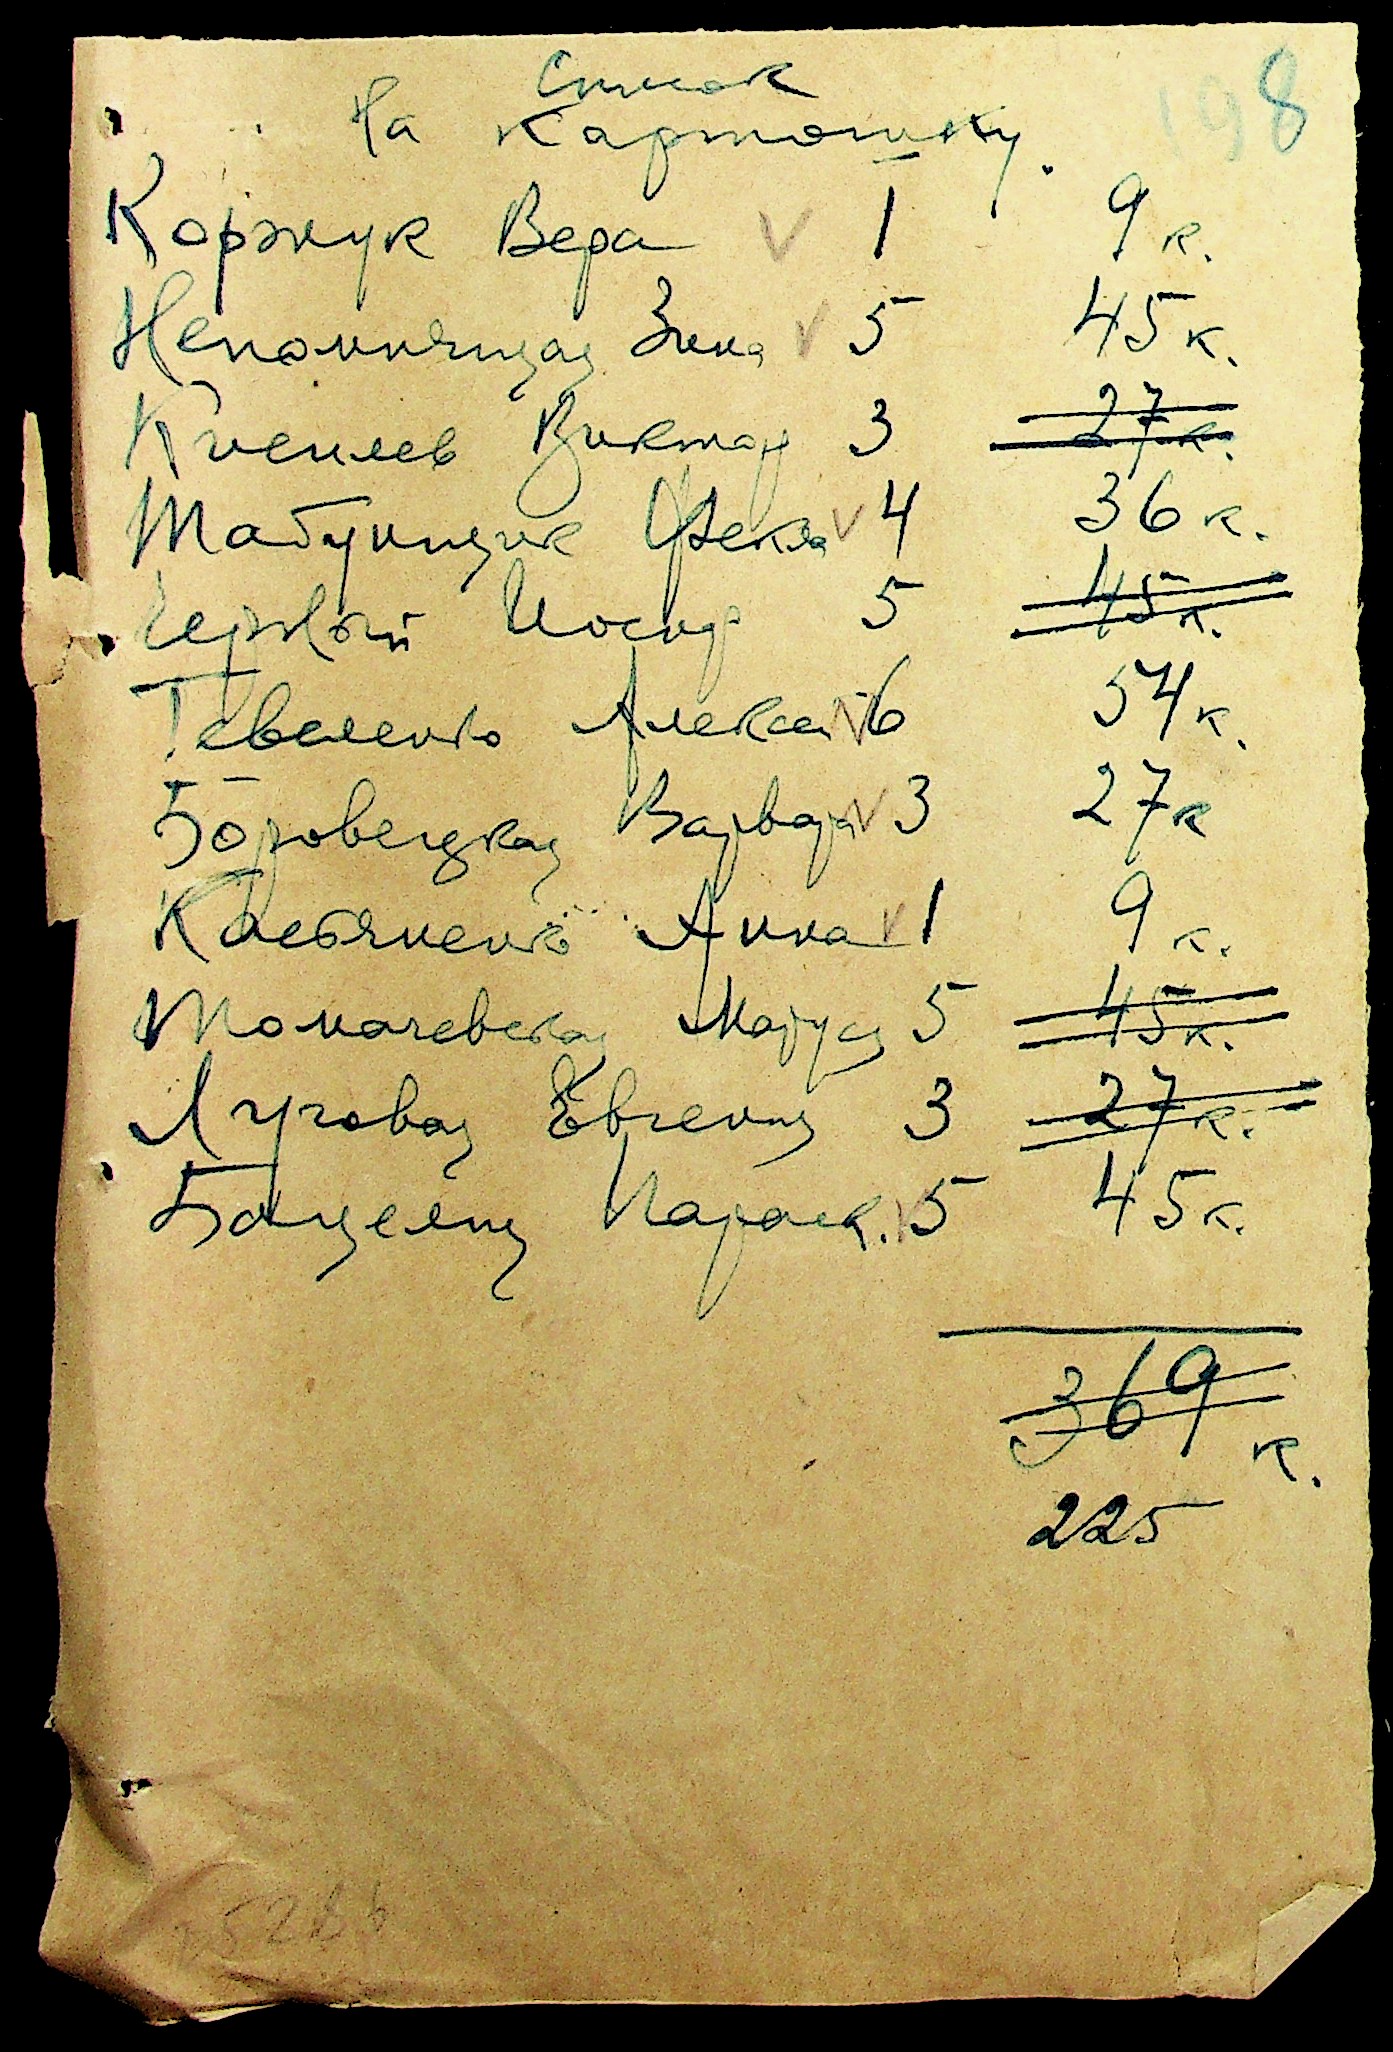 198
Список
На картошку.
Коржук Вера V 1 9 к.
Непомнящая Зина V 5 45 к.
Киселев Виктор 3 27 к.
Табунщик Фекла V 4 36 к.
Черный Иосиф 5 45 к.
Гавеленко Алексей V 6 54 к.
Боровецкая Варвара V 3 27 к
Касьяненко Анна V 1 9 к.
Томачевская Маруся 5 45 к.
Луговая Евгения 3 27 к.
Парск. V 5 45 к.
369 к.
225